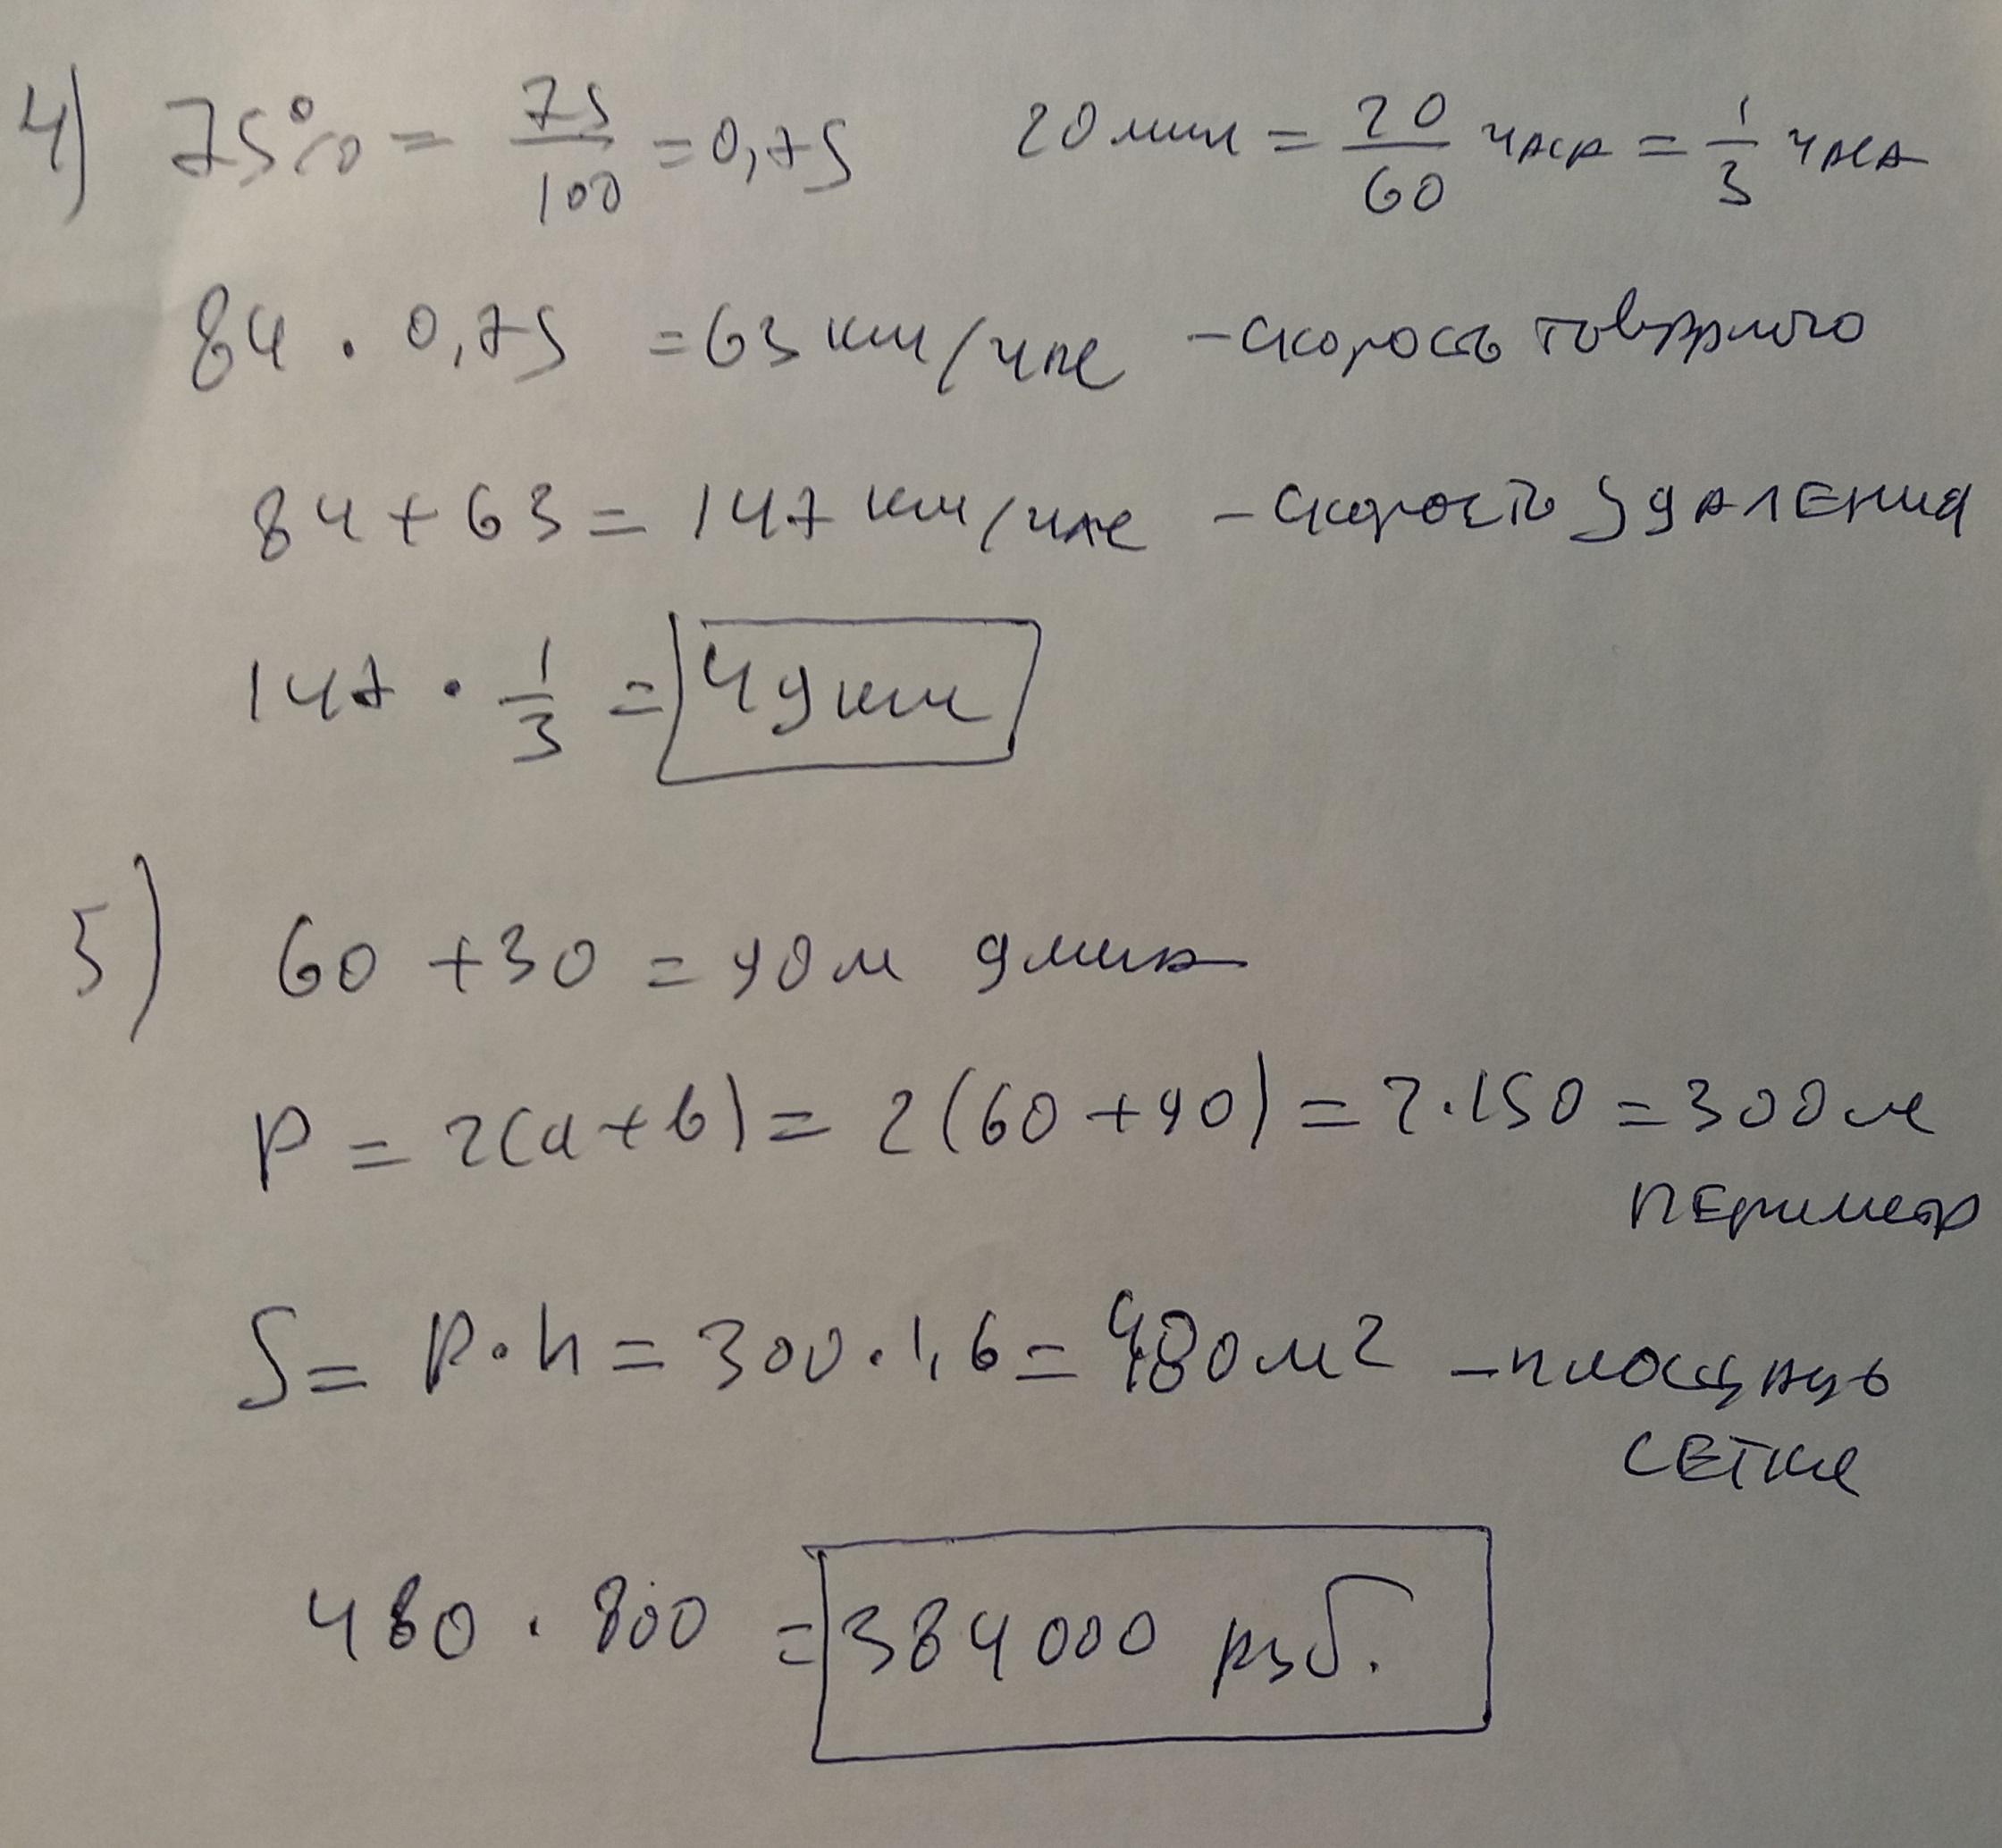 4) 75% = 75/100 = 0,75 20 мин = 20/60 часа = 1/3 часа
84 · 0,75 = 63 км/час - скорость товарного
84 + 63 = 147 км/час - скорость удаления
147 · 1/3 = 49 км
5) 60 + 30 = 90 м длина
P = 2(a + b) = 2(60 + 90) = 2 · 150 = 300 м
периметр
S = P · h = 300 · 1,6 = 480 м² - площадь
сетки
480 · 800 = 384000 руб.